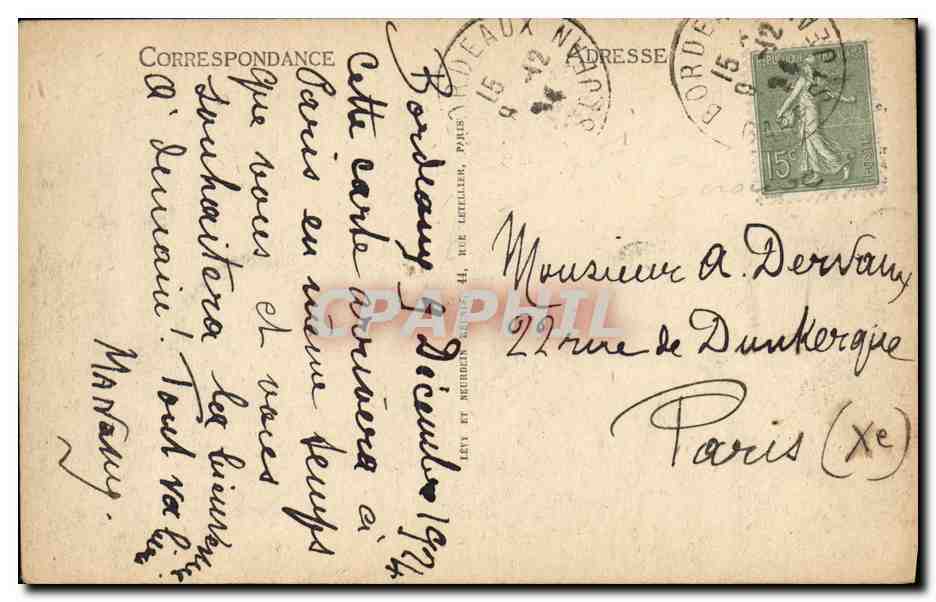 CORRESPONDANCE
ADRESSE
BORDEAUX
15
9 -12
BORDEAUX
15
9 -12
15c
Bordeaux 9 Décembre 1924
Cette carte arrivera à
Paris en même temps
que vous et vous
souhaitera la bienvenue
A demain ! Tout va bien
LÉVY ET NEURDEIN RÉUNIS, 44, RUE LETELLIER, PARIS
Monsieur A. Dervaux
22 rue de Dunkerque
Paris (Xe)
CPAPHIL